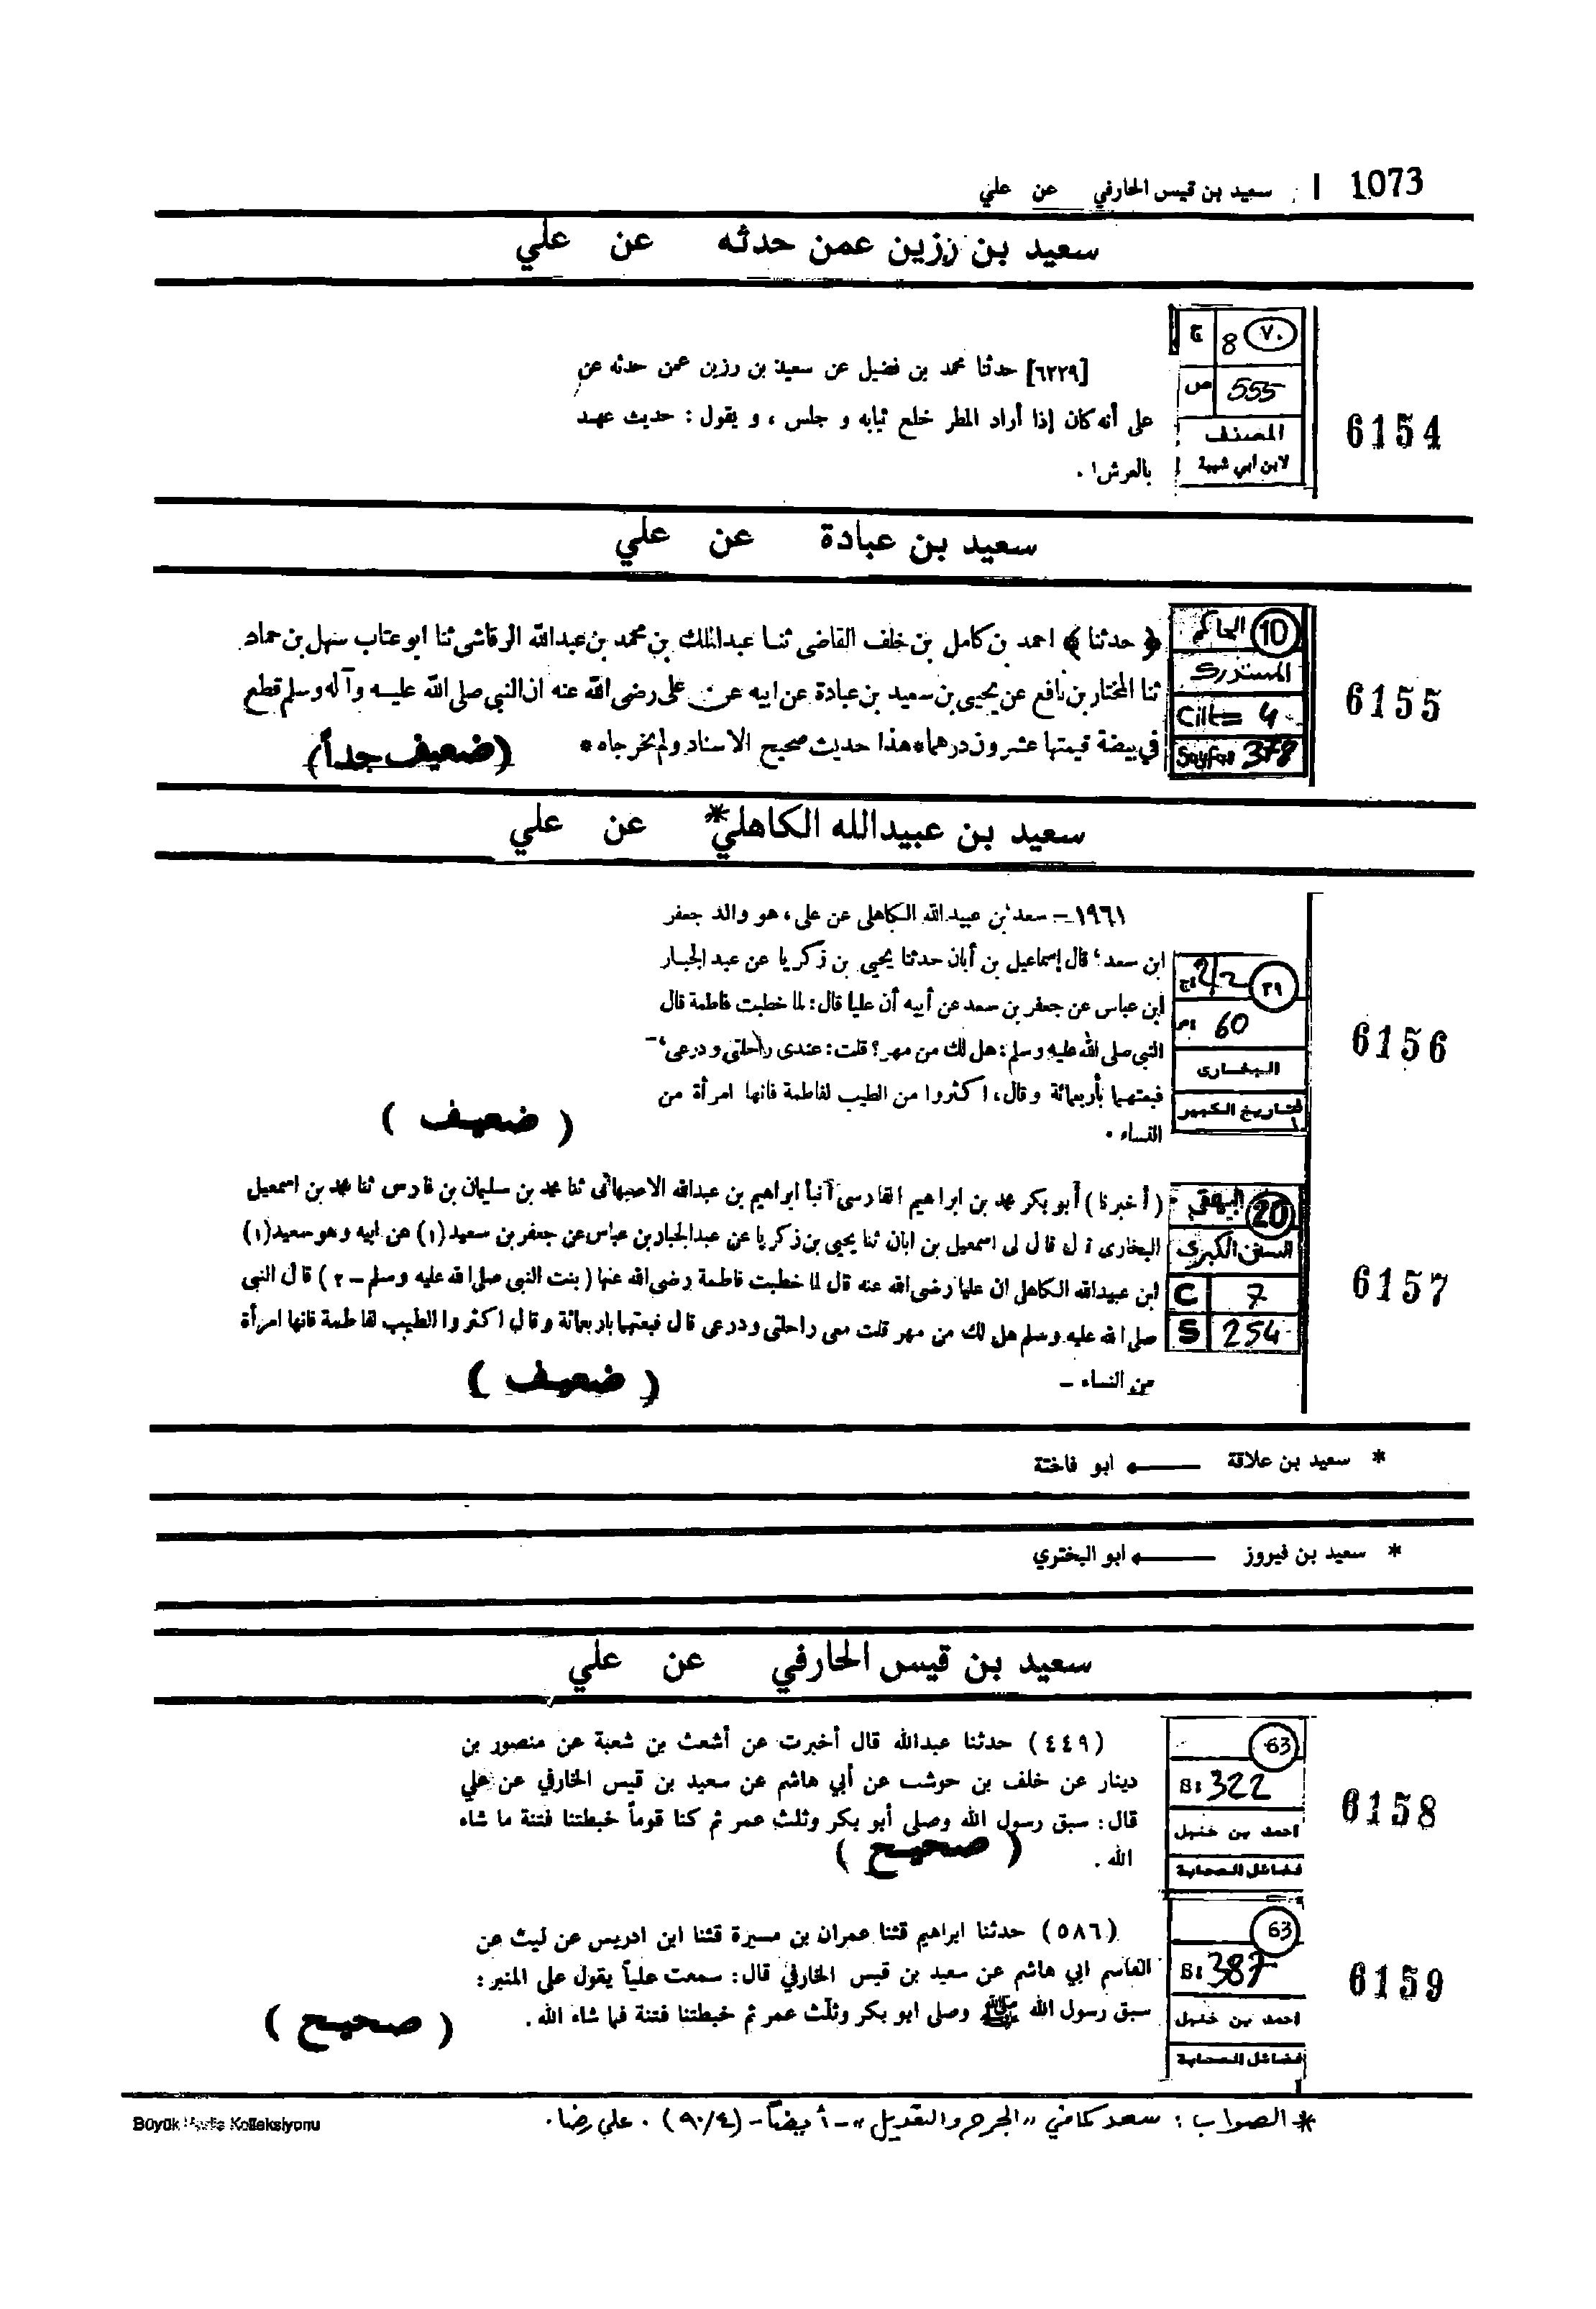 1073 | سعيد بن قيس الحارفي عن علي
سعيد بن رزين عمن حدثه عن علي
ج 8 ٧٠
ص 555
المصنف
لابن أبي شيبة
6154
[٦٢٢٩] حدثنا محمد بن فضيل عن سعيد بن رزين عمن حدثه عن
على أنه كان إذا أراد المطر خلع ثيابه و جلس ، و يقول : حديث عهد
بالعرش١ .
سعيد بن عبادة عن علي
الحاكم 10
المستدرك
Cilt= 4
Sayfa: 378
6155
﴿ حدثنا ﴾ احمد بن كامل بن خلف القاضى ثنا عبدالملك بن محمد بن عبدالله الرقاشى ثنا ابو عتاب سهل بن حماد
ثنا المختار بن نافع عن يحيى بن سعيد بن عبادة عن ابيه عن على رضى الله عنه ان النبي صلى الله عليه وآله وسلم قطع
في بيضة قيمتها عشرون درهما * هذا حديث صحيح الاسناد ولم يخرجاه *
(ضعيف جداً)
سعيد بن عبيدالله الكاهلي* عن علي
ج: 2/2 ٣٩
ص: 60
البخارى
التاريخ الكبير
6156
١٩٦١ – سعد بن عبيد الله الكاهلى عن على ، هو والد جعفر
ابن سعد ؛ قال إسماعيل بن أبان حدثنا يحيى بن زكريا عن عبد الجبار
ابن عباس عن جعفر بن سعد عن أبيه أن عليا قال : لما خطبت فاطمة قال
النبي صلى الله عليه وسلم : هل لك من مهر ؟ قلت : عندى راحلتى و درعى ،
فبعتهما بأربعمائة و قال ، اكثروا من الطيب لفاطمة فانها امرأة من
النساء .
( ضعيف )
البيهقي 20
السنن الكبرى
C 7
S 254
6157
( أخبرنا ) أبو بكر محمد بن ابراهيم الفارسى أنبأ ابراهيم بن عبدالله الاصبهانى ثنا محمد بن سليمان بن فارس ثنا محمد بن اسمعيل
البخارى قال قال لى اسمعيل بن ابان ثنا يحيى بن زكريا عن عبدالجبار بن عباس عن جعفر بن سعيد (١) عن ابيه وهو سعيد (١)
ابن عبيدالله الكاهلى ان عليا رضى الله عنه قال لما خطبت فاطمة رضى الله عنها ( بنت النبى صلى الله عليه وسلم – ٢ ) قال النبى
صلى الله عليه وسلم هل لك من مهر قلت معى راحلتى ودرعى قال فبعتهما باربعمائة وقال اكثروا الطيب لفاطمة فانها امرأة
من النساء –
( ضعيف )
* سعيد بن علاقة ← ابو فاختة
* سعيد بن فيروز ← ابو البختري
سعيد بن قيس الحارفي عن علي
63
S: 322
احمد بن حنبل
فضائل الصحابة
6158
(٤٤٩) حدثنا عبدالله قال أخبرت عن أشعث بن شعبة عن منصور بن
دينار عن خلف بن حوشب عن أبي هاشم عن سعيد بن قيس الخارفي عن علي
قال : سبق رسول الله وصلى أبو بكر وثلث عمر ثم كنا قوماً خبطتنا فتنة ما شاء
الله .
( صحيح )
63
S: 387
احمد بن حنبل
فضائل الصحابة
6159
(٥٨٦) حدثنا ابراهيم قثنا عمران بن ميسرة قثنا ابن ادريس عن ليث عن
القاسم ابي هاشم عن سعيد بن قيس الخارفي قال : سمعت علياً يقول على المنبر :
سبق رسول الله ﷺ وصلى ابو بكر وثلث عمر ثم خبطتنا فتنة فما شاء الله .
( صحيح )
* الصواب : سعد كما في "الجرح والتعديل" – أيضاً – (٩٠/٤) . علي رضا .
Büyük Kolleksiyonu